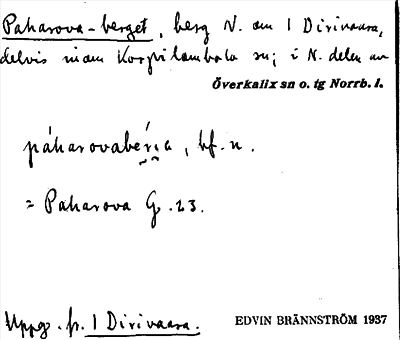 Paharova-berget, berg N. om 1 Dirivaara,
delvis inom Korpilombolo sn; i N. delen av
Överkalix sn o. tg Norrb. l.
páharovabér̯i̯a, bf. n.
= Paharova G. 23.
Uppg. fr. 1 Dirivaara.
EDVIN BRÄNNSTRÖM 1937